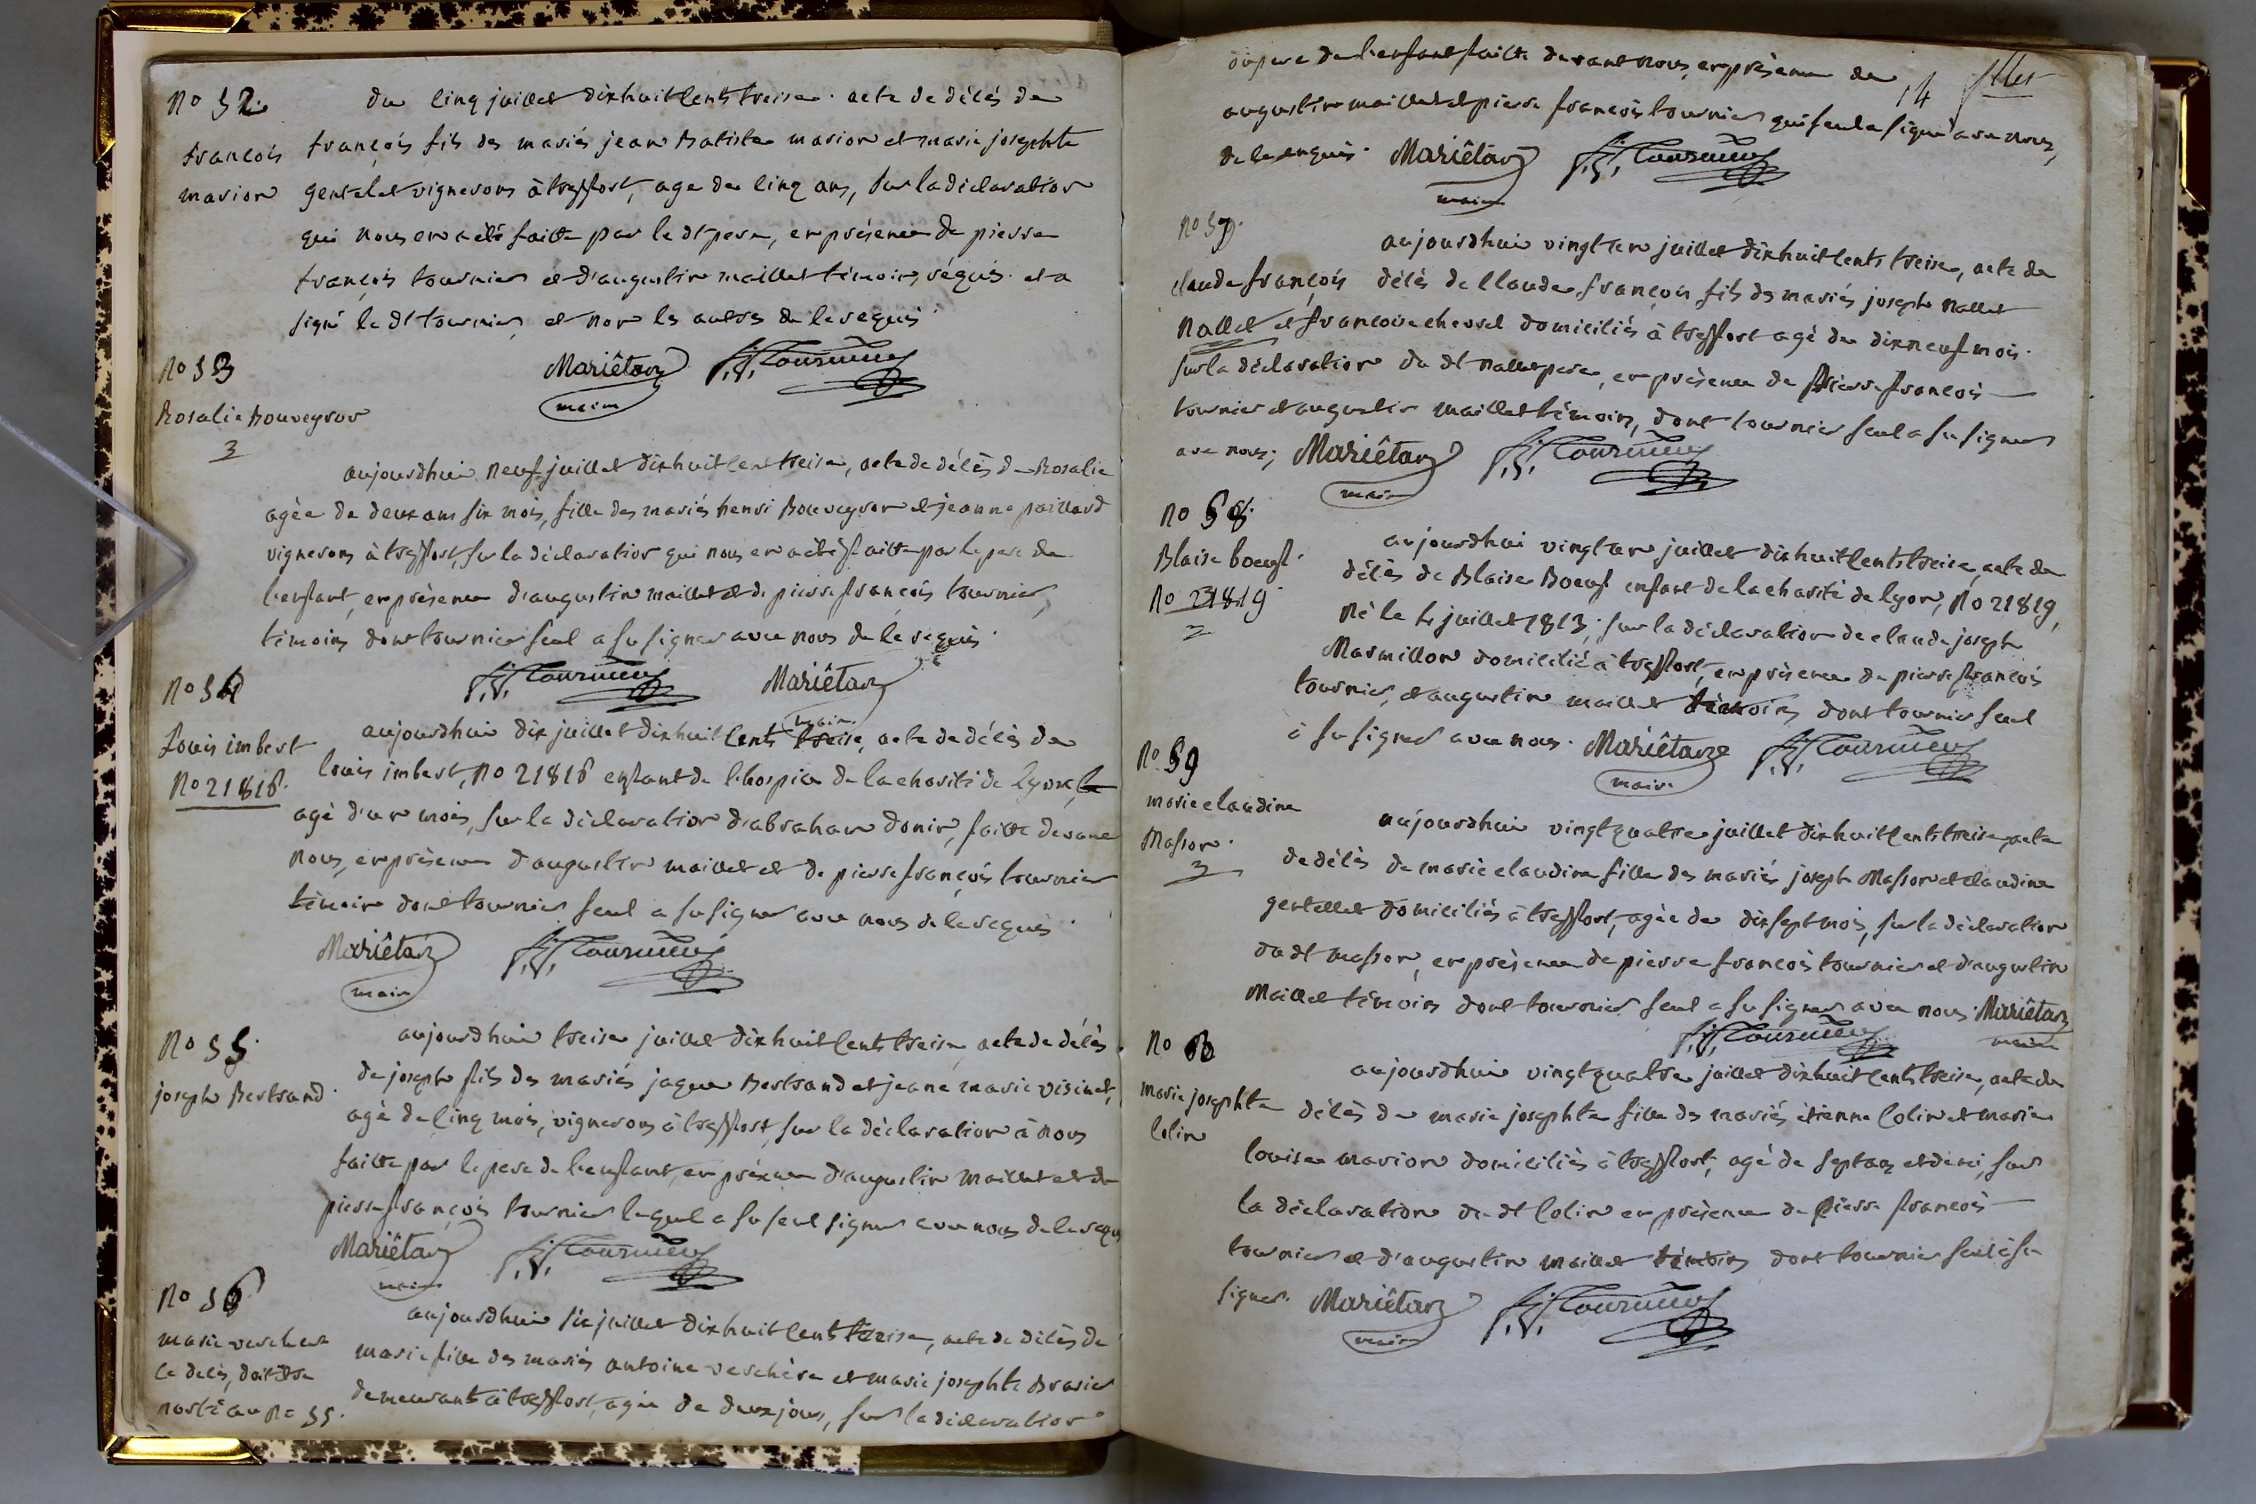 No 52
françois
marion
du cinq juillet dixhuit cents treise. acte de décés de
françois fils des mariés jean Batiste marion et marie josephte
gentelet vignerons à treffort, agé de cinq ans, sur la déclaration
qui nous en a été faitte par le dt pere, en présence de pierre
françois tournier et d'augustin maillet témoins réquis. et a
signé le dt tournier et non les autres de le requis
Mariétan F. F. Tournier
maire
No 53
Rosalie Bouveyron
3
aujourdhui neuf juillet dixhuit cent treise, acte de décès de Rosalie
agée de deux ans six mois, fille des mariés henri Bouveyron et jeanne paillard
vignerons à treffort, sur la déclaration qui nous en a été faitte par le pere de
l'enfant, en présence d'augustin maillet et de pierre françois tournier,
témoins dont tournier seul a su signer avec nous de le requis.
F. F. Tournier Mariétan
maire
No 54
Louis imbert
No 21816
aujourdhui dix juillet dixhuit cents treise, acte de décès de
louis imbert, No 21816 enfant de l'hospice de la charité de lyon,
agé d'un mois, sur la déclaration d'abraham donin, faitte devant
nous, en présence d'augustin maillet et de pierre françois tournier
témoin dont tournier seul a su signer avec nous de le requis.
Mariétan F. F. Tournier
maire
No 55
joseph Bertrand
aujourdhui treise juillet dixhuit cents treise, acte de décès
de joseph fils des mariés jaque Bertrand et jeane marie visinet,
agé de cinq mois, vignerons à treffort, sur la déclaration à nous
faitte par le pere de l'enfant, en présence d'augustin maillet et de
pierre françois tournier lequel a su seul signer avec nous de le requi
Mariétan F. F. Tournier
maire
No 56
marie vescher
ce décès, doit être
porté au No 55.
aujourdhui six juillet dixhuit cents treise, acte de décès de
marie fille des mariés antoine veschère et marie josephte Brasier
demeurants à treffort, agée de deux jours, sur la déclaration
14
du pere de l'enfant faitte devant nous, en présence de
augustin maillet et pierre françois tournier qui seul a signé avec nous,
de le enquis. Mariétan F. F. Tournier
maire
No 57.
claude françois
Nallet
aujourdhui vingt un juillet dixhuit cents treise, acte de
décès de Claude françois fils des mariés joseph Nallet
et francoise chevrel domiciliés à treffort agé de dixneuf mois.
sur la déclaration du dt nallet pere, en présence de Pierre françois
tournier et augustin maillet témoins, dont tournier seul a su signer
avec nous; Mariétan F. F. Tournier
maire
No 58.
Blaise boeuf.
No 21819.
aujourdhui vingt un juillet dixhuit cents treise, acte de
décès de Blaise Boeuf enfant de la charité de lyon, No 21819,
Né le 4 juillet 1813; sur la déclaration de claude joseph
Marmillon domicilié à treffort, en présence de pierre françois
tournier, et augustin maillet témoins dont tournier seul
à su signer avec nous. Mariétan F. F. Tournier
maire
No 59
marie claudine
Masson.
3
aujourdhui vingt quatre juillet dixhuit cents treise, acte
de décès de marie claudine fille des mariés joseph Masson et claudine
gentellet domiciliés à treffort, agée de dixsept mois, sur la déclaration
du dt masson, en présence de pierre françois tournier et d'augustin
Maillet témoins dont tournier seul a su signer avec nous. Mariétan
F. F. Tournier maire
No
marie josephte
Colin
aujourdhui vingt quatre juillet dixhuit cents treise, acte de
décès de marie josephte fille des mariés étienne Colin et marie
louise marion domiciliés à treffort, agé de sept ans et demi, sur
la déclaration du dt Colin en présence de Pierre françois
tournier et d'augustin maillet témoins dont tournier seul à su
signer. Mariétan F. F. Tournier
maire